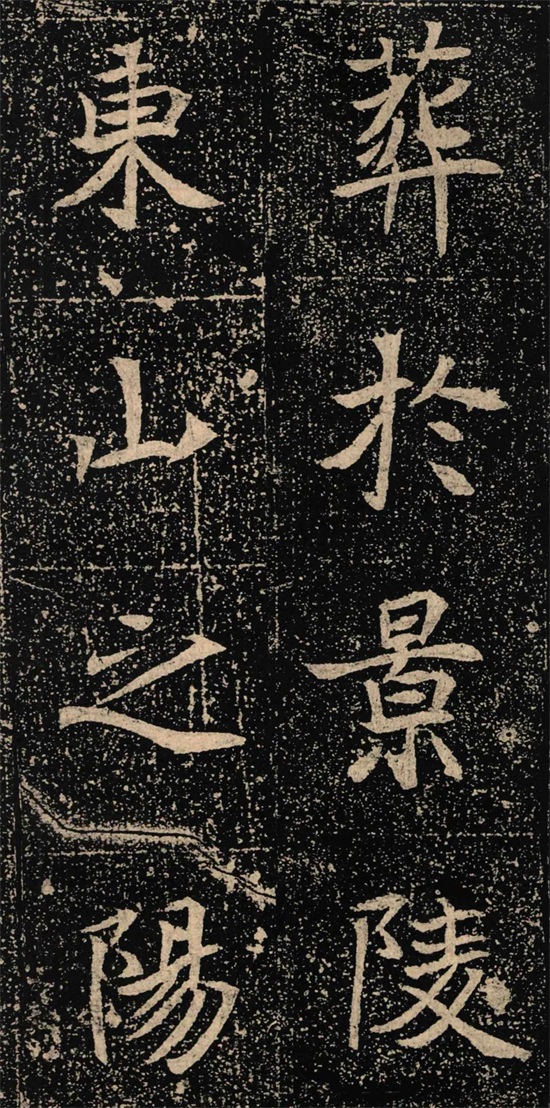 葬於景陵
東山之陽